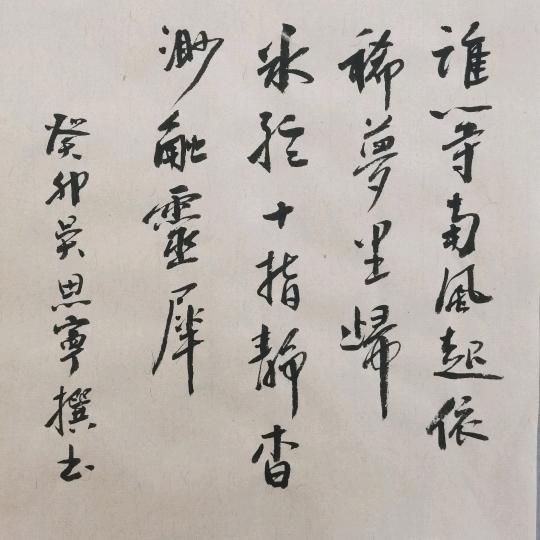 誰等南風起依
稀夢里歸
氷弦十指靜杳
渺融靈犀
癸卯吳思寧撰书